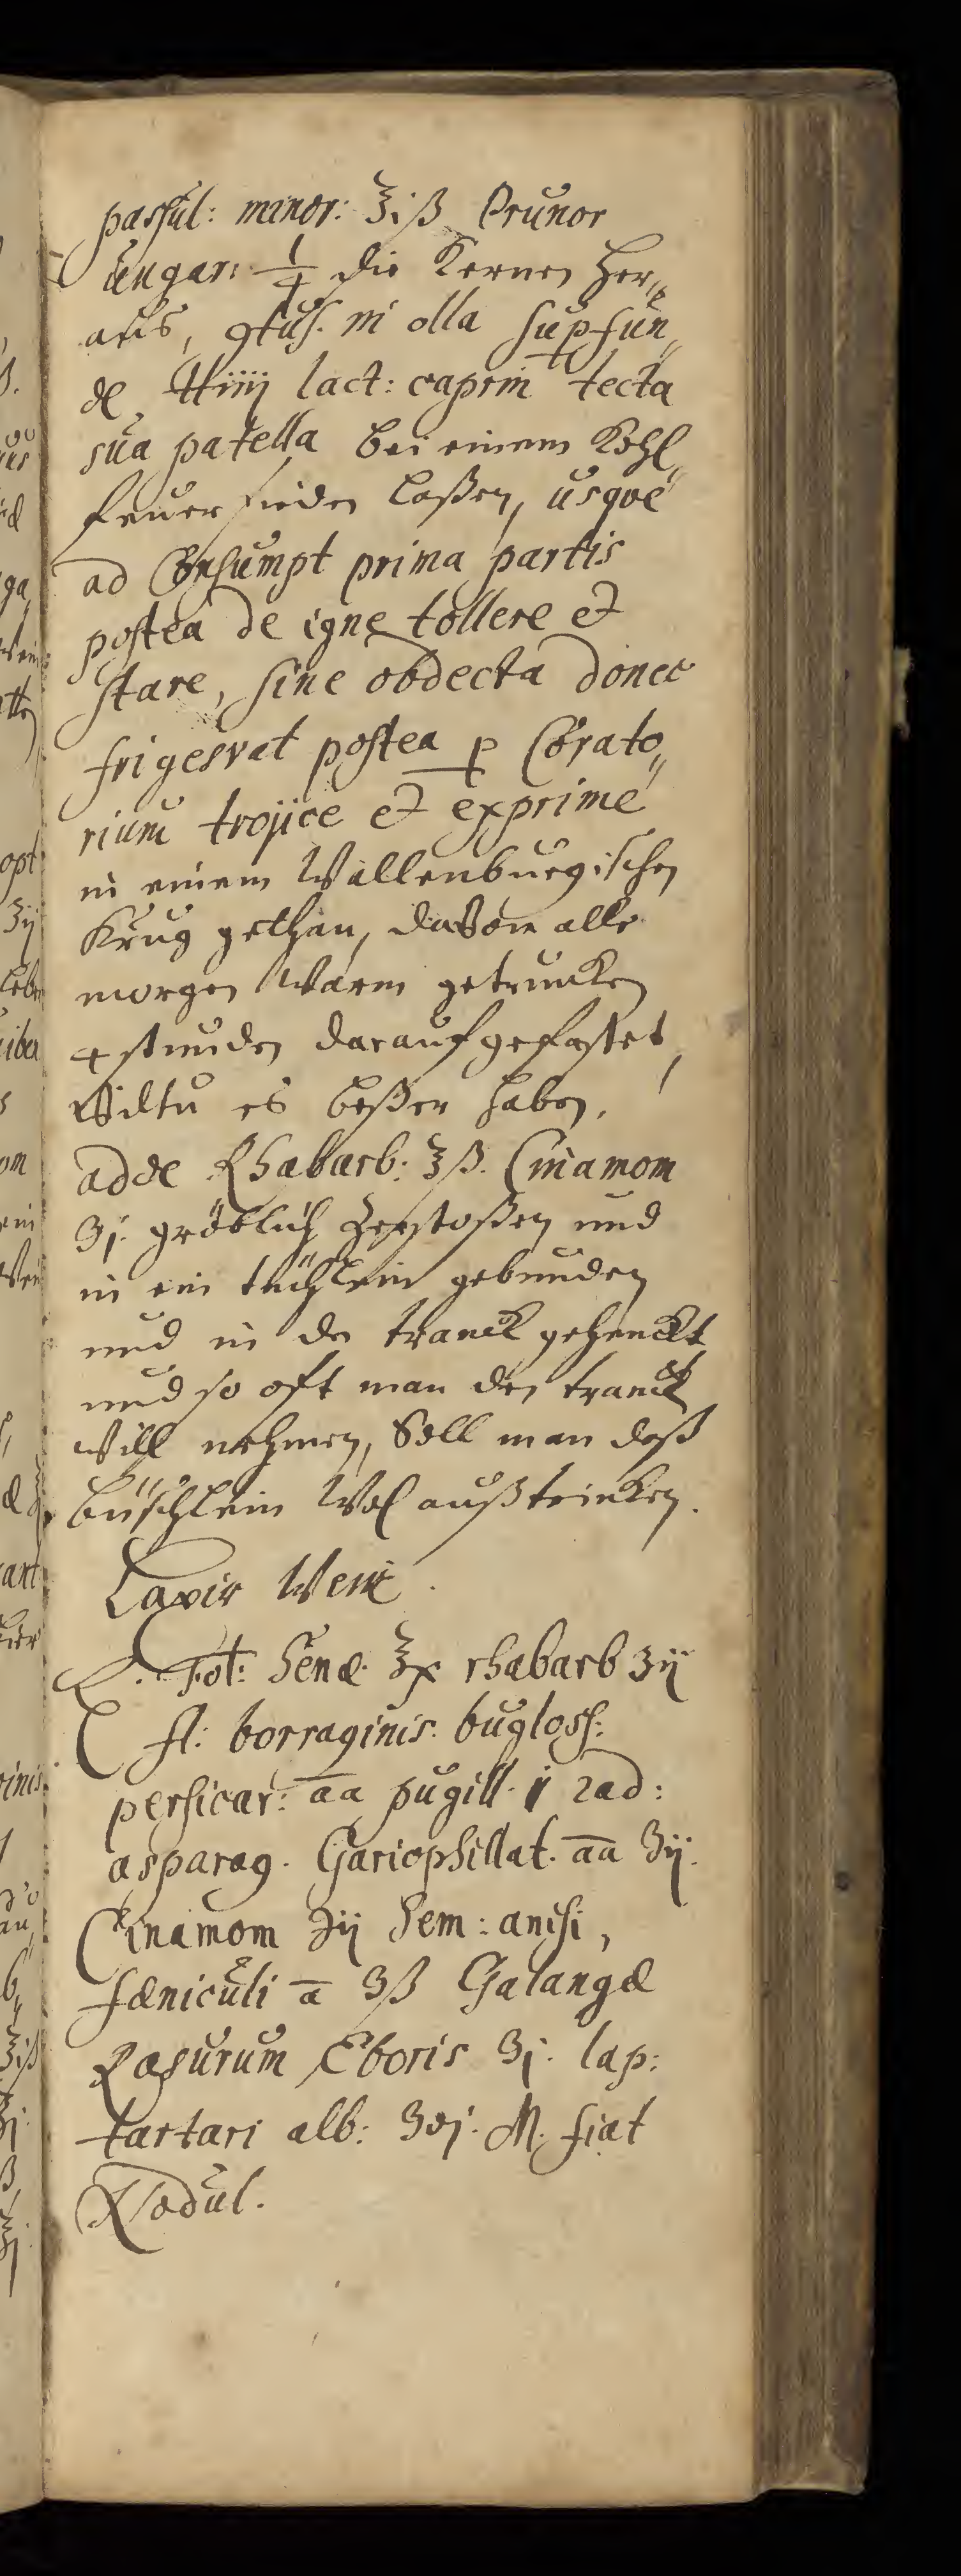 passul: minor: ℥iß Prunor
ungar: 1/4 die Kernen her„
aus, ꝯtus. in olla supfun„
de ℔iiij lact: caprin tecta
sua patella bei einem Kohl„
feuer sieden laßen, usqve
ad Consumpt prima partis
postea de igne tollere et
stare, sine obdecta donec
frigescat postea p Corato„
rium trojice et exprime
in einem Wallenburgischen
Krug gethan, davon alle
morgen Warm getruncken
4 stunden darauf gefastet,
Wiltu es beßer haben,
adde Rhabarb: ℥ß. Cinamom
ʒj. gröblich zerstoßen und
in ein tüchlein gebunden
und in den tranck gehenckt
und so oft man den tranck
will nehmen, Soll man daß
büschlein Wol außtrinken.
Laxir Wein.
℞. Fol: Senæ ℥x rhabarb ʒij
fl: borraginis. bugloss:
persicar: āā pugill. j rad:
asparag. Gariophillat. āā ʒij.
Cinamom ʒij Sem: anisi,
fæniculi ā ʒß Galangæ
Rasurum Eboris ʒj. lap:
tartari alb: ʒvj. M. fiat
Nodul.